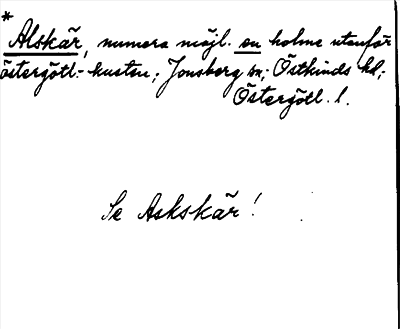 *
Alskär, numera möjl. en holme utanför
östergötl.-kusten; Jonsberg sn; Östkinds hd;
Östergötl. l.
Se Askskär!